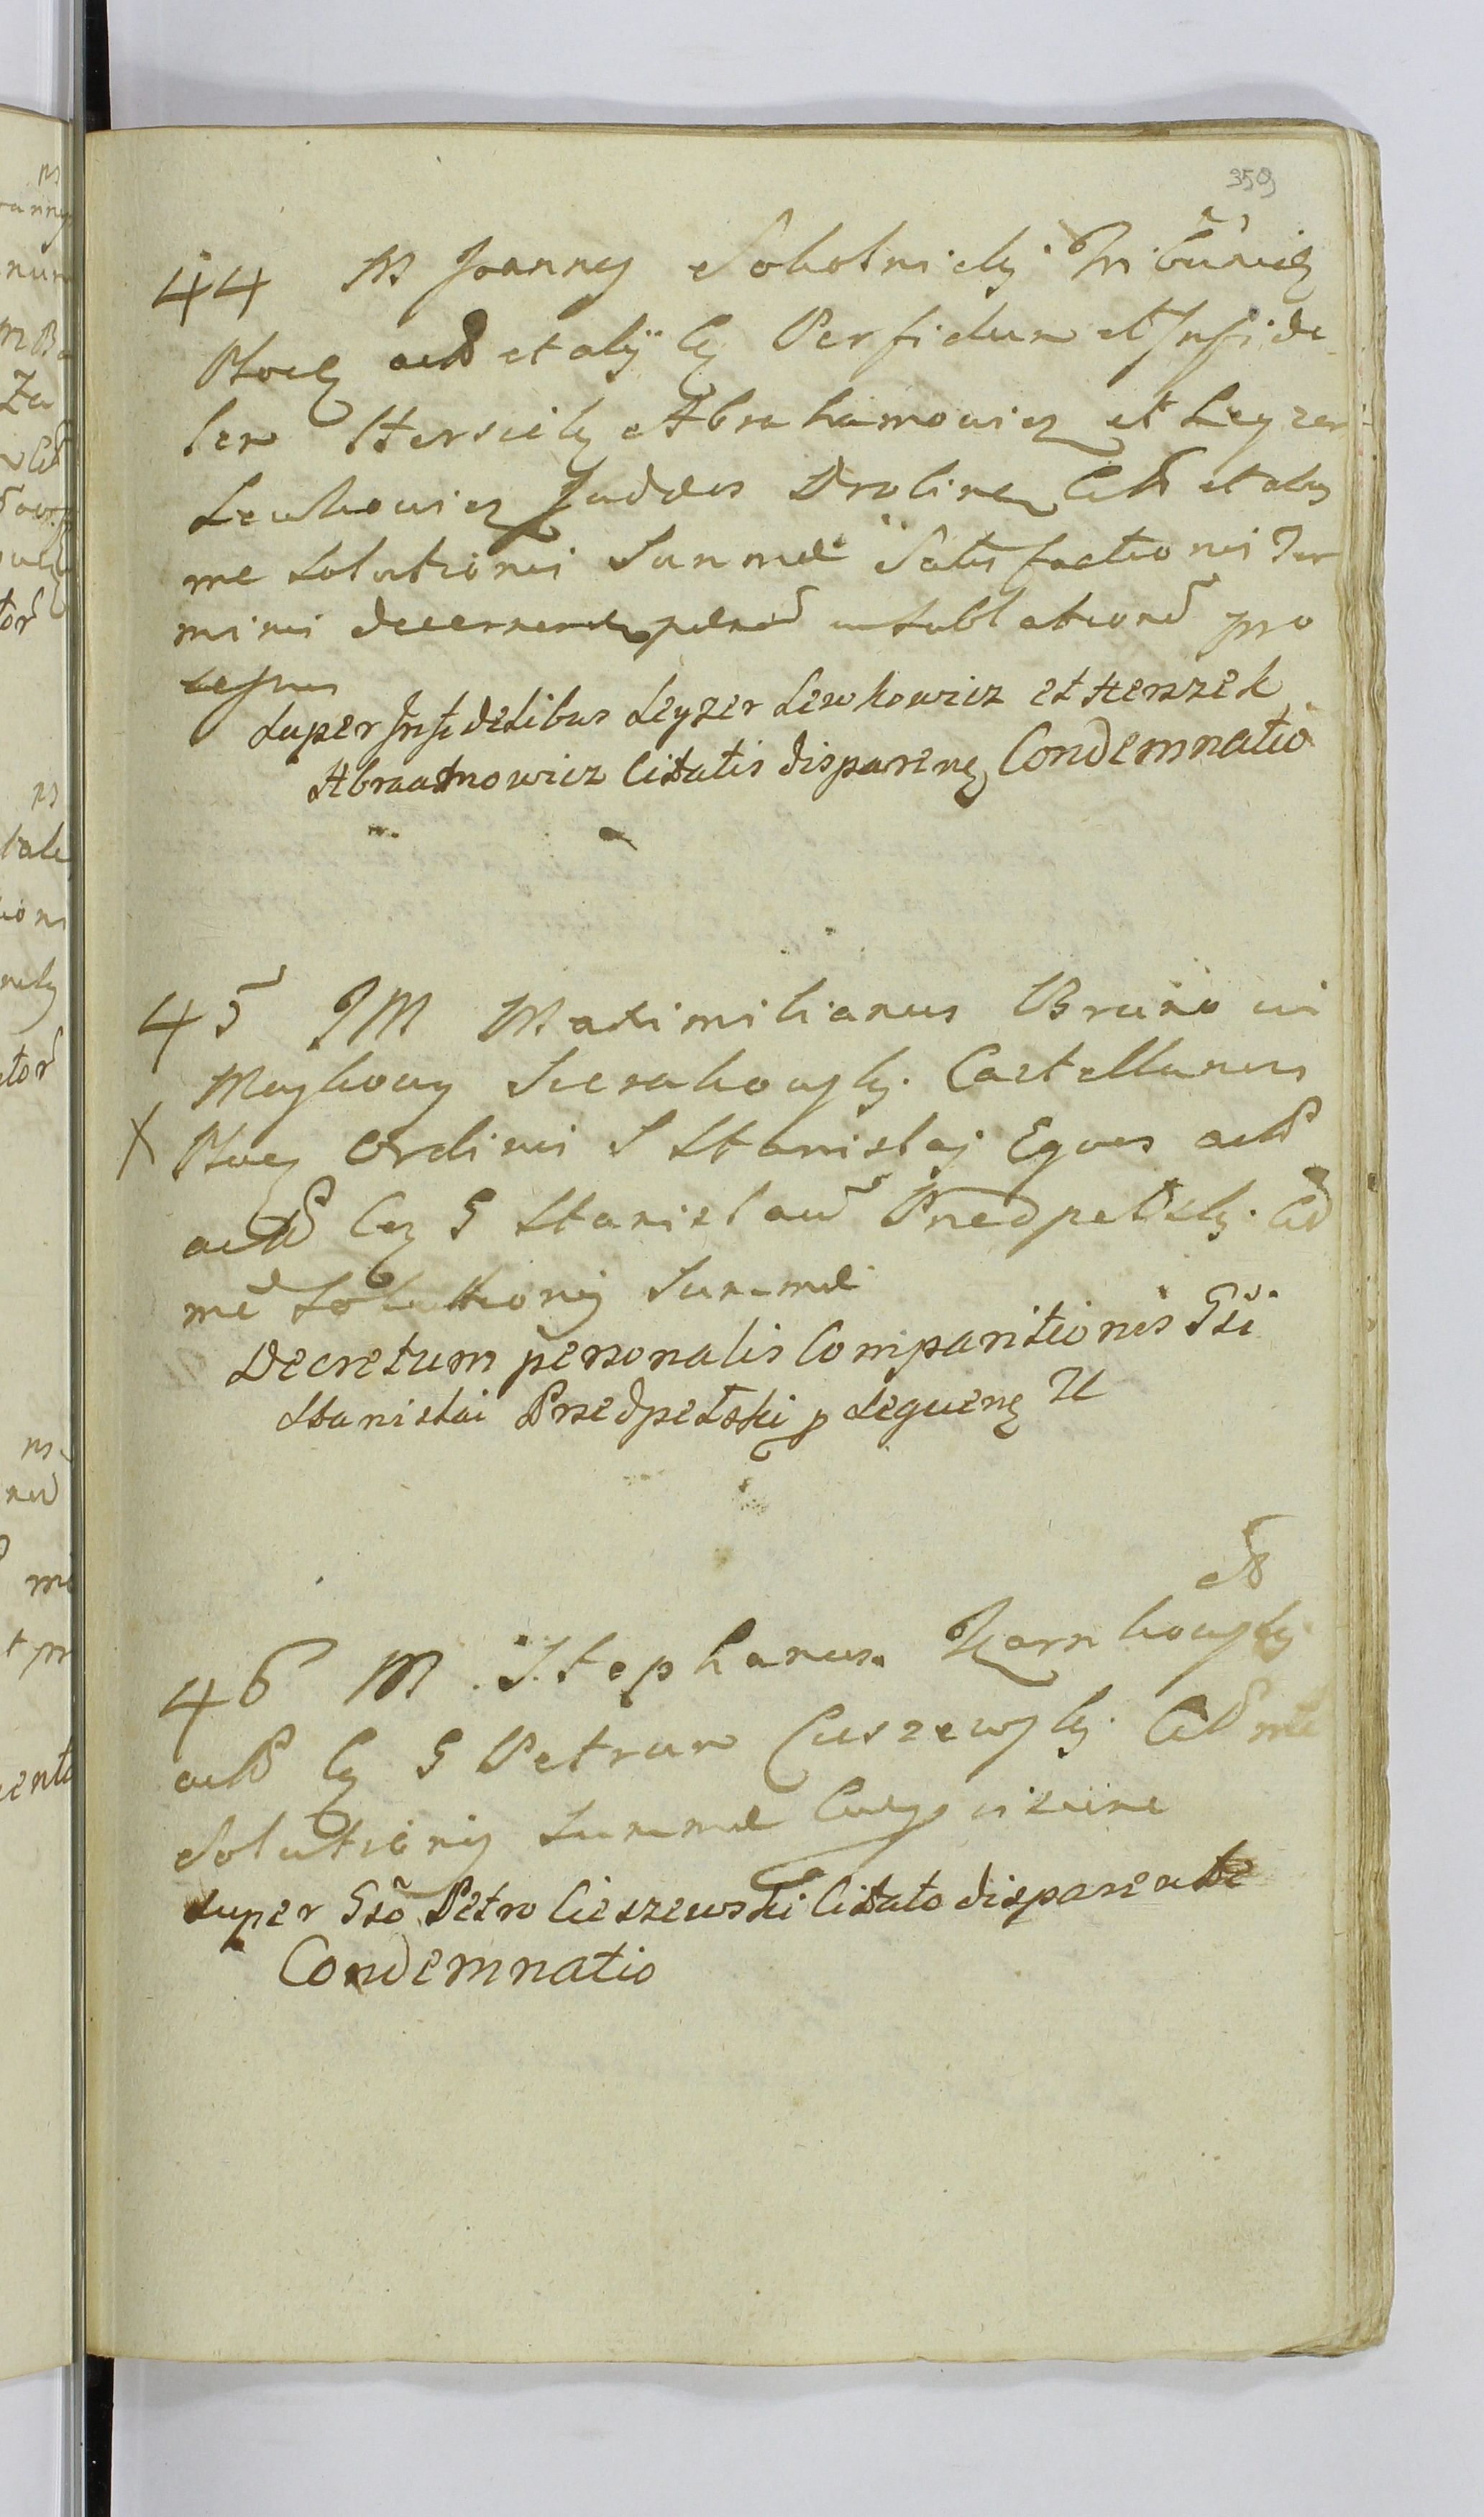 359
44 M Joannes Sokolnicky Tribunidz
actor et alij Cz Perfidum et Infide
lem Hersiek Abrahamowicz et Leyzer
Lewkowicz Judaeos Drobinen Citt et alios
me Solutionis Summae Satisfactionis Ter
mini decernend paenar
cessus
Super Infidelibus Leyzer Lewkowicz et Herszek
Abraamowicz Citatis disparenz Condemnatio
45 JM Maximilianus Bruno in
Myszkowy Sierakowsky Castellanus
X Ordinis S Stanislaj Eques actor
actor Cz G Stanislaum Przedpelsky Citt
me Solutionis Summae
Decretum personalis Comparitionis Gsi
Stanislai Przedpelski p Sequenz
46 M Stephanus Zarnkowsky
actor Cz G Petrum Cieszewsky Citt me
Solutionis Summae
Super Gso Petro Cieszewski Citato disparente
Condemnatio